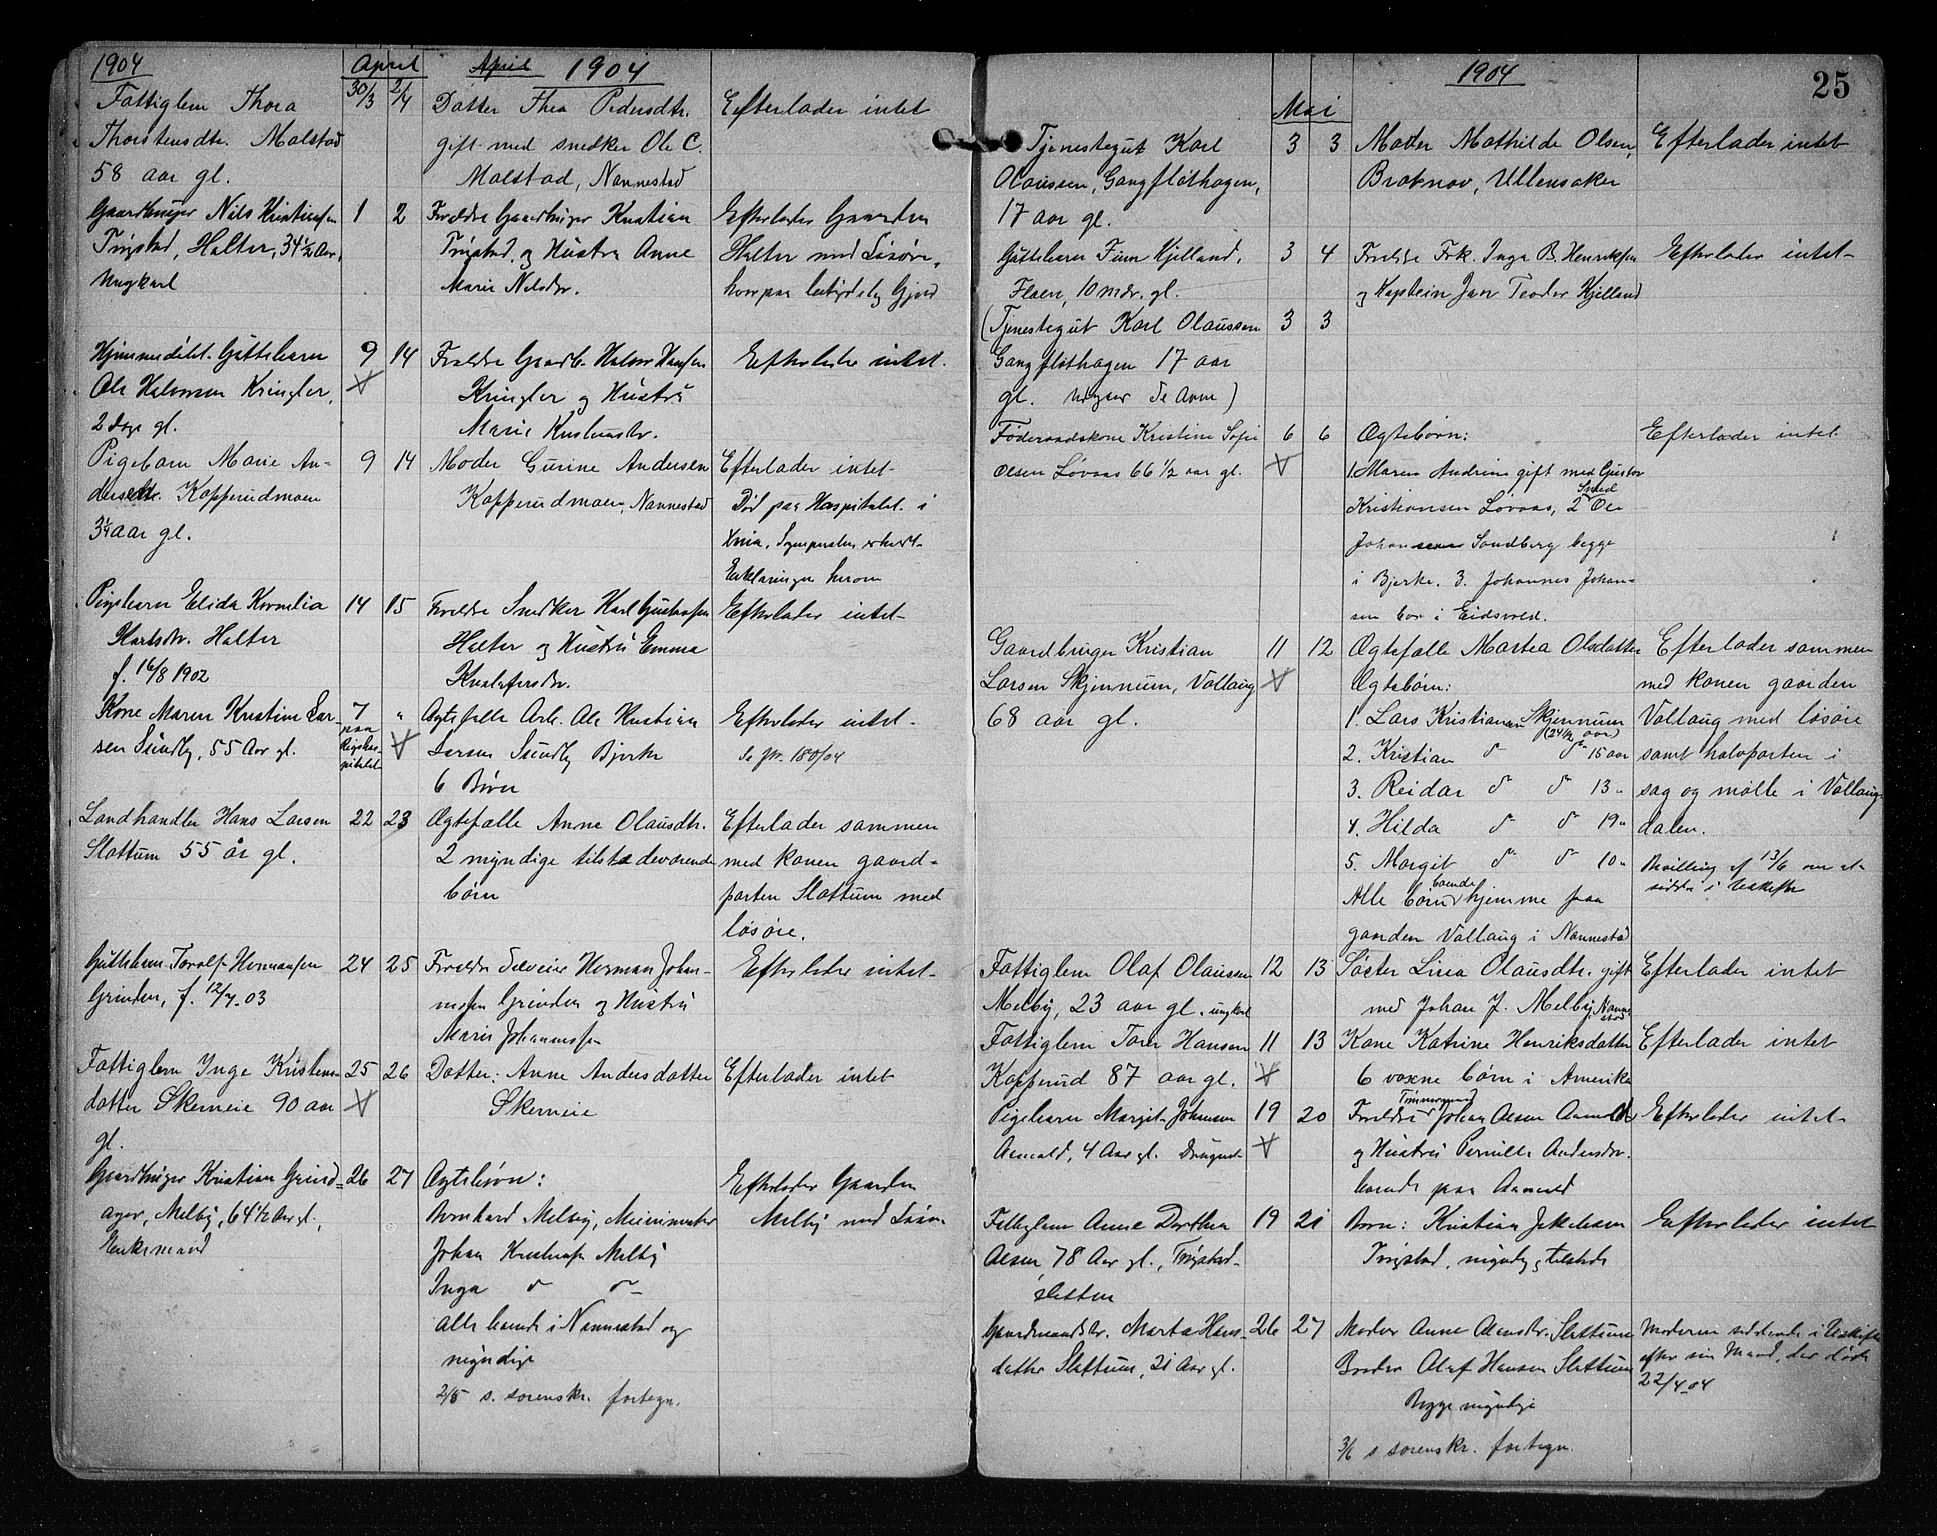 1904 April April 1904
Fattiglem Thora 30/3 2/4 Datter Thea Pedersdtr. Efterlader intet
Thorstensdtr. Malstad gift med snedker Ole C.
58 aar gl. Malstad, Nannestad
Gaardbruger Nils Kristiansen 1 2 Forældre Gaardbruger Kristian Efterlader Gaarden
Trygstad, Holter, 34 1/2 Aar, Trygstad og Hustru Anne Holter med Løsøre,
Ungkarl Marie Nilsdtr. hvorpaa betydelig Gjæld
Hjemmedøbt Guttebarn 9 14 Forældre Gaardb. Halvor Hansen Efterlader intet.
Ole Halvorsen Kringler, Kringler og Hustru
2 dage gl. Marie Kristiansdtr.
Pigebarn Marie An- 9 14 Moder Gurine Andersen Efterlader intet
dersdtr. Kopperudmoen Kopperudmoen, Nannestad Død paa Hospitalet i
3 1/4 aar gl. Xnia, Sognepresten erhvert
Erklæringen herom
Pigebarn Elida Kornelia 14 15 Forældre Snedker Karl Gustafsen Efterlader intet
Karlsdtr. Holter Holter og Hustru Emma
f. 16/8 1902
Kone Maren Kristine Lar- 7 " Ægtefælle Arb. Ole Kristian Efterlader intet
sen Sundby, 55 Aar gl. paa Rigshos- pitalet Larsen Sundby Bjerke Se jr. 180/04
6 Børn
Landhandler Hans Larsen 22 23 Ægtefælle Anne Olausdtr. Efterlader sammen
Slattum 55 år gl. 2 myndige tilstedeværende med konen gaard-
børn parten Slattum med
løsøre.
Guttebarn Torolf Hermansen 24 25 Forældre Herman Johan- Efterlader intet
Grinden, f. 12/7-03 nesen Grinden og Hustru
Marie Johannesen
Fattiglem Inge Kristens- 25 26 Datter: Anne Andersdatter Efterlader intet
datter Skerneie 90 aar Skerneie
gl.
Gaardbruger Kristian Grind- 26 27 Ægtebørn: Efterlader Gaarden
ager, Melby, 64 1/2 Aar gl., Bernhard Melby, Melby med Løsøre
Enkemand Johan Kristiansen Melby
Inga do do
alle boende i Nannestad og
myndige
2/5 s. sorenskr. fortegn.
1904 25
Mai
Tjenestegut Karl 3 3 Moder Mathilde Olsen, Efterlader intet
Olaussen, Gangfløthagen, Bratnov, Ullensaker
17 aar gl.
Guttebarn Finn Kjelland, 3 4 Forældre Frk. Inga B. Henriksen Efterlader intet
Flaen, 10 mdr. gl. og Kaptein Jan Teodor Kjelland
(Tjenestegut Karl Olaussen 3 3
Gangfløthagen 17 aar
gl. Udgaar Se oven)
Føderaadskone Kristine Sofie 6 6 Ægtebørn: Efterlader intet
Olsen Løvaas 66 1/2 aar gl. 1. Maren Andrine gift med Gustav
Kristiansen Løvaas, 2. Smed Ole
Johansen Sandberg begge
i Bjerke. 3. Johannes Johan-
sen bor i Eidsvold.
Gaardbruger Kristian 11 12 Ægtefælle Martea Olsdatter Efterlader sammen
Larsen Skjennum, Vollaug Ægtebørn: med konen gaarden
68 aar gl. 1. Lars Kristiansen Skjennum (24 1/2 aar) Vollaug med løsøre
2. Kristian do do 15 aar samt halvparten i
3. Reidar do do 13 " sag og mølle i Vollaug-
4. Hilda do do 19 " dalen.
5. Margit do do 10 " Bevilling af 13/6 om at
Alle børn boende hjemme paa sidde i Uskifte
gaarden Vollaug i Nannestad
Fattiglem Olaf Olausen 12 13 Søster Lina Olausdtr. gift Efterlader intet
Melby, 23 aar gl. ungkarl med Johan J. Melby, Nanne- stad
Fattiglem Torer Hansen 11 13 Kone Katrine Henriksdatter Efterlader intet
Kopperud 87 aar gl. 6 voxne børn i Amerika
Pigebarn Margit Johansen 19 20 Forældre Tømmermand Johan Olsen Aamold Efterlader intet
Aamold, 4 Aar gl. Druknet og Hustru Pernille Andersdtr.
boende paa Aamold
Fattiglem Anne Dorthea 19 21 Børn: Kristian Jakobsen Efterlader intet
Olsen 78 Aar gl., Trygstad- Trygstad, myndig, tilstede
sletten
Gaardmandsdtr. Marta Hans- 26 27 Moder Anne Olausdtr. Slattum Moderen siddende i Uskifte
datter Slattum, 21 Aar gl. Broder Olaf Hansen Slattum efter sin Mand, der døde
Begge myndige 22/4-04
3/6 s sorenskr. fortegn.